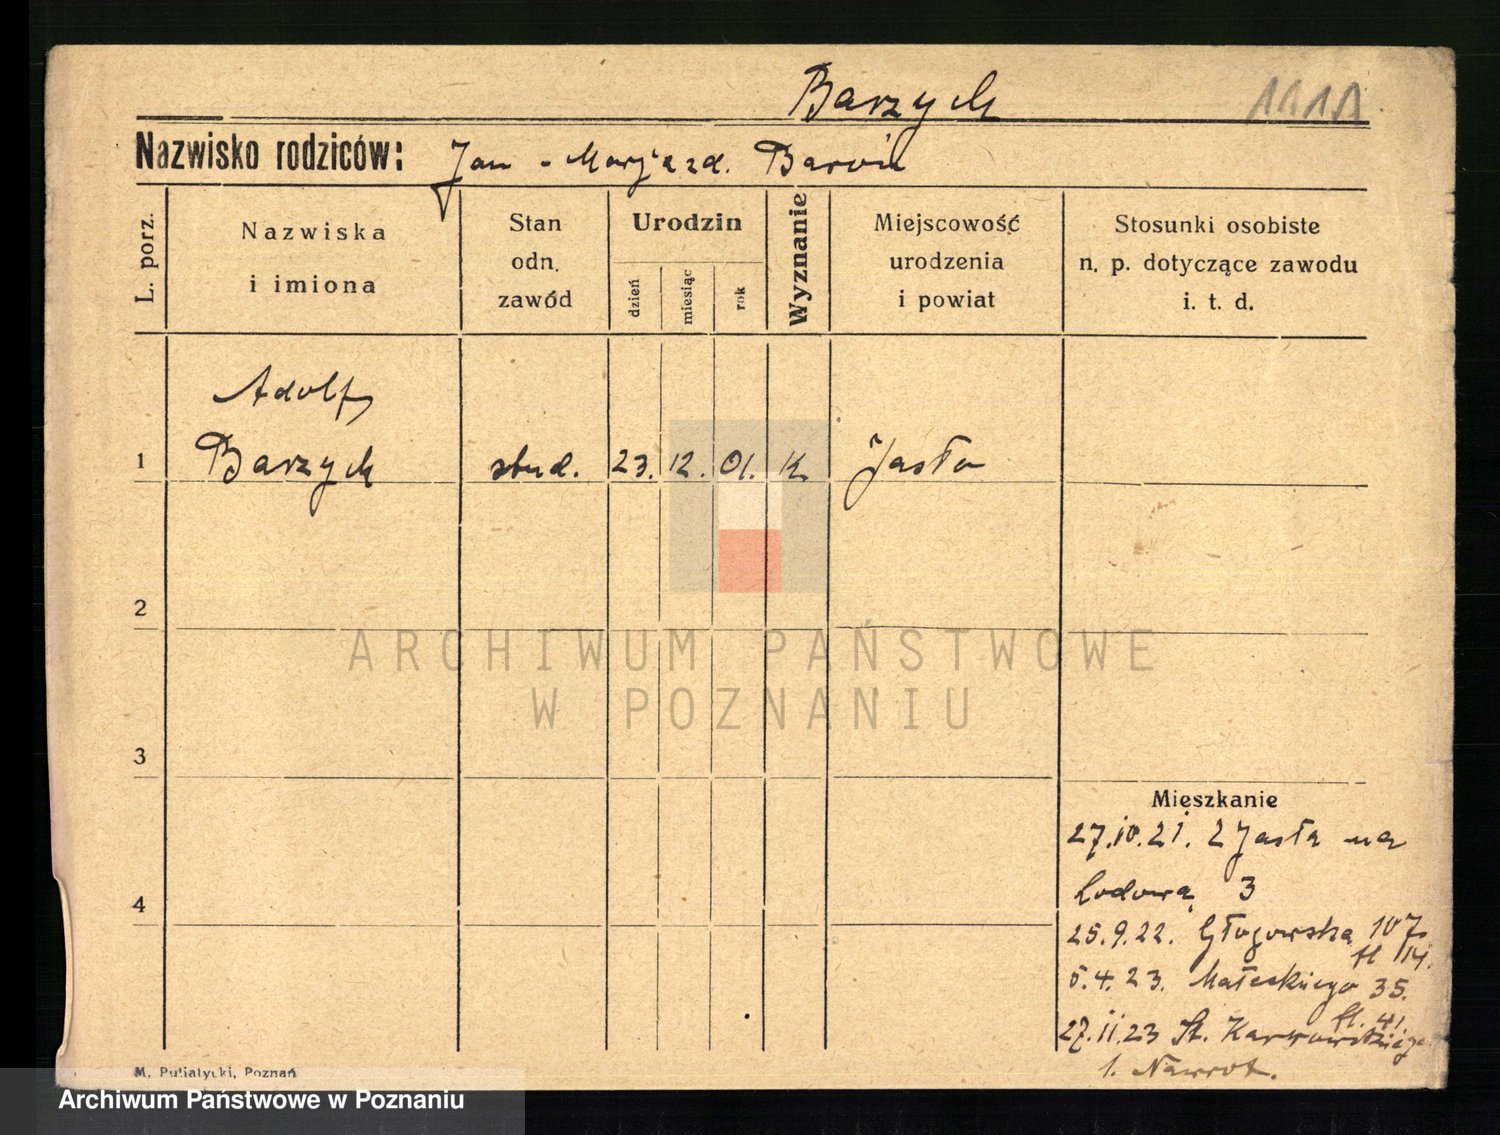 Barzych 1111
Nazwisko rodziców: Jan - Marja zd. Barvik
L. porz.
Nazwiska
i imiona
Stan
odn.
zawód
Urodzin
dzień
miesiąc
rok
Wyznanie
Miejscowość
urodzenia
i powiat
Stosunki osobiste
n. p. dotyczące zawodu
i. t. d.
Adolf
1 Barzych stud. 23. 12. 01. K Jasło
2
ARCHIWUM PAŃSTWOWE
W POZNANIU
3
Mieszkanie
27.10.21. Z Jasła na
Lodową 3
4
25.9.22. Głogowska 107
14.
5.4.23. Małeckiego 35.
41.
27.11.23
1. Nawrot.
M. Putiatycki, Poznań
Archiwum Państwowe w Poznaniu